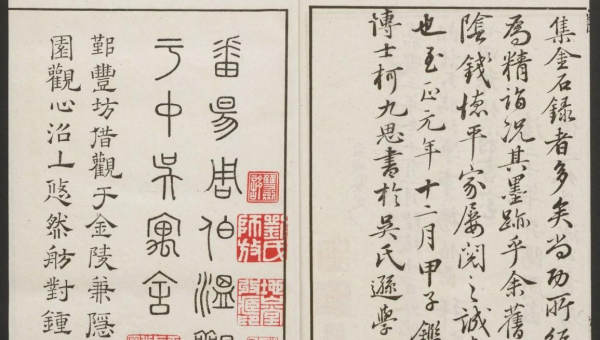 集金石録者多矣尚功所
為精詣況其墨跡乎余舊
陰錢徳平家屢閱之誠
也至正元年十二月甲子鑑
博士柯九思書於吳氏遜學
番昜周伯溫觀
于中吳寓舍
鄞豐坊借觀于金陵兼隱
園觀心沼上悠然舫對鍾
劉氏
師放